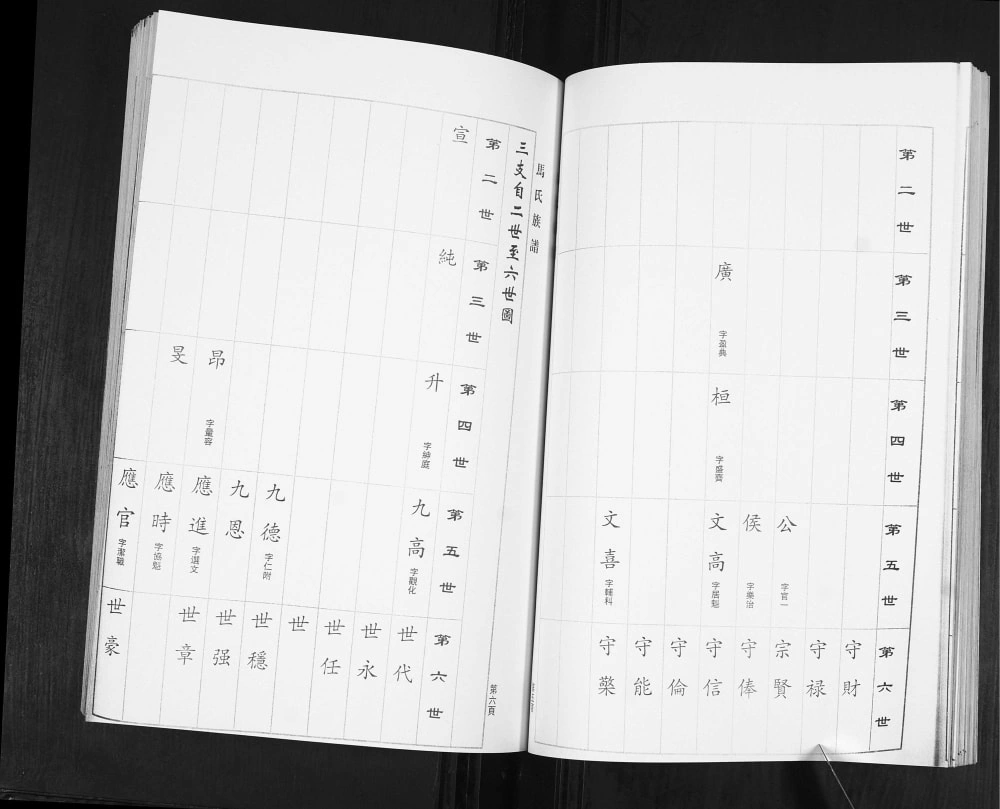 第二世
第三世
廣
字盈典
第四世
桓
字盛齊
第五世
公
字官一
侯
字樂治
文高
字居魁
文喜
字輔科
第六世
守財
守禄
宗賢
守俸
守信
守倫
守能
守檠
馬氏族譜
第六頁
三支自二世至六世圖
第二世
宣
第三世
純
第四世
升
字紳庭
昂
字量容
旻
第五世
九高
字觀化
九德
字仁附
九恩
應進
字選文
應時
字協魁
應官
字潔職
第六世
世代
世永
世任
世
世穩
世强
世章
世豪